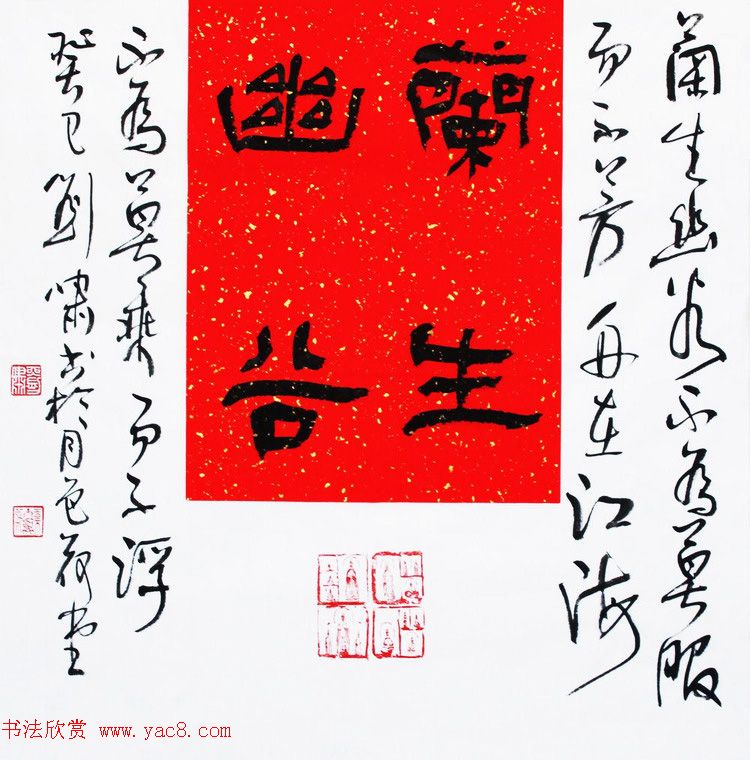 蘭生
幽谷
蘭生幽谷不為莫服
而不芳舟在江海
不為莫乘而不浮
癸巳劉嘯书於月色荷堂
书法欣赏 www.yac8.com